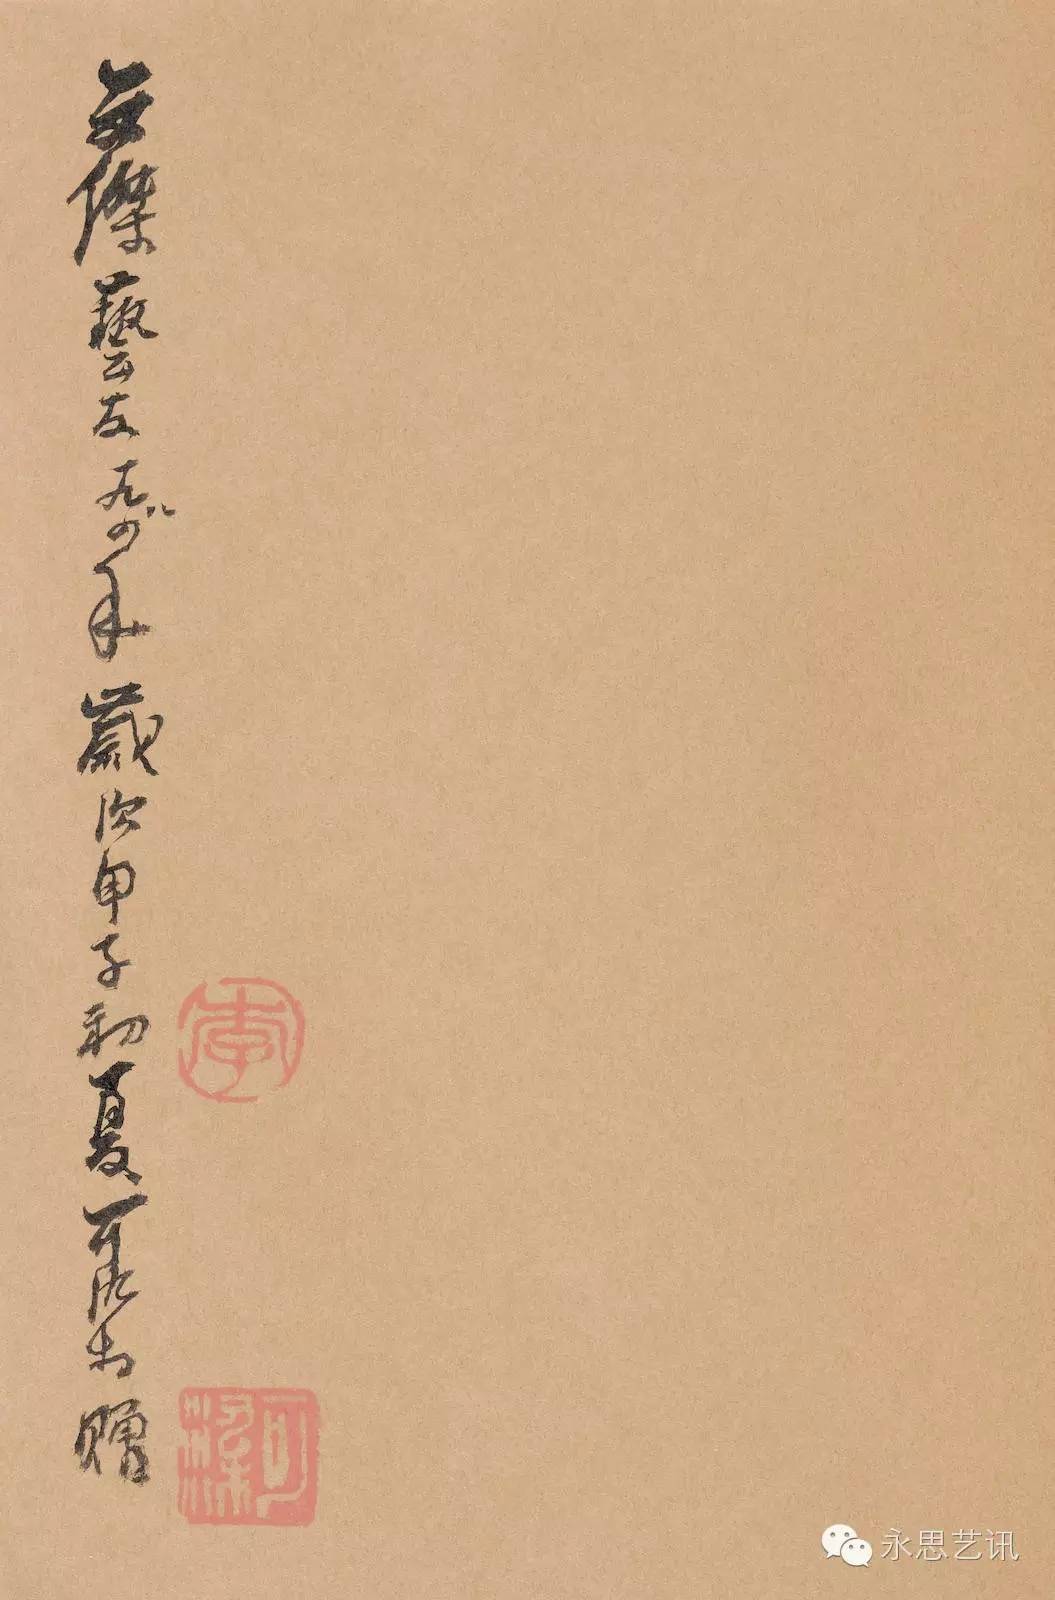 傑藝友一九八四年歲次甲子初夏可染贈
李
可染
永思艺讯